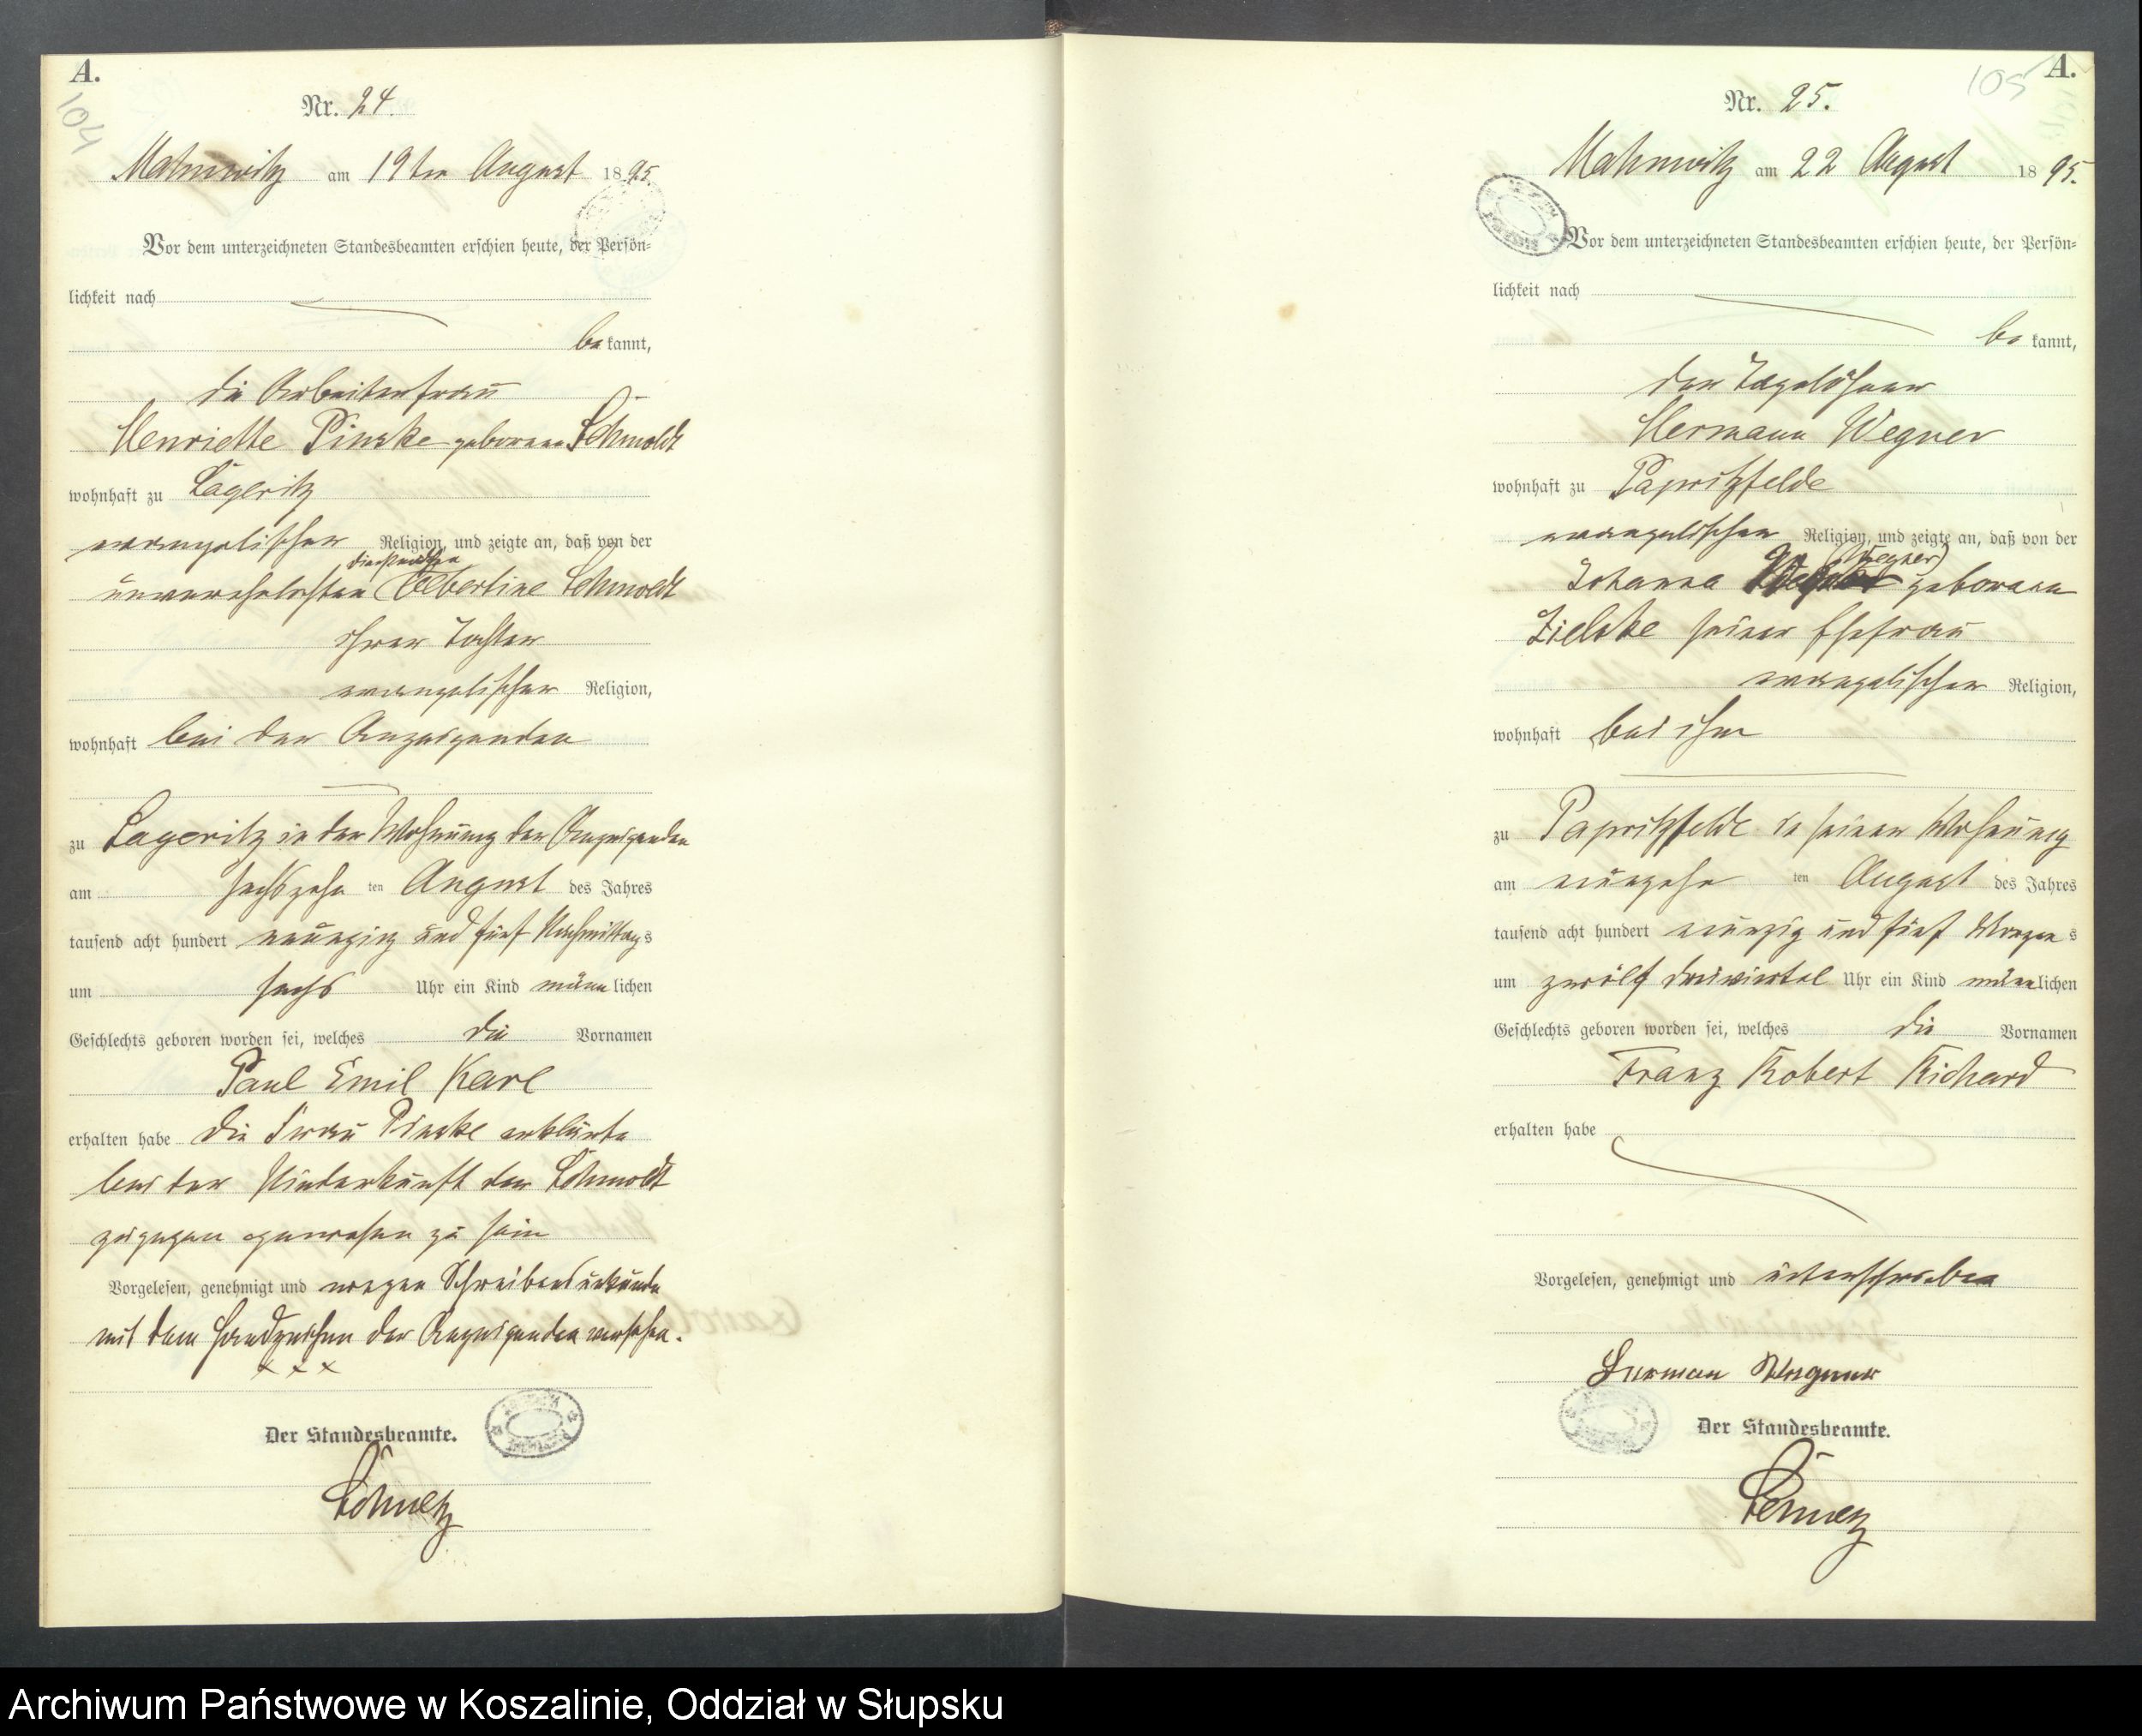 A.
104
Nr. 24.
Mahnwitz am 19ten August 1895
Vor dem unterzeichneten Standesbeamten erschien heute, der Persön=
lichkeit nach
be kannt,
die Arbeiterfrau
Henriette Pinske geborene Schmoldt
wohnhaft zu Lageritz
evangelischer Religion, und zeigte an, daß von der
unverehelichten Albertine Schmoldt
ihrer Tochter
evangelischer Religion,
wohnhaft bei der Anzeigenden
zu Lageritz in der Wohnung der Anzeigenden
am sechszehn ten August des Jahres
tausend acht hundert neunzig und fünf Nachmittags
um sechs Uhr ein Kind männlichen
Geschlechts geboren worden sei, welches die Vornamen
Paul Emil Karl
erhalten habe die Frau Pinske erklärte
bei der Niederkunft der Schmoldt
zugegen gewesen zu sein
Vorgelesen, genehmigt und wegen Schreibensunkunde
mit dem Handzeichen der Anzeigenden versehen.
x x x
Der Standesbeamte.
A.
105
Nr. 25.
Mahnwitz am 22 August 1895.
Vor dem unterzeichneten Standesbeamten erschien heute, der Persön=
lichkeit nach
be kannt,
der Tagelöhner
Hermann Wegner
wohnhaft zu Papritzfelde
evangelischer Religion, und zeigte an, daß von der
(Wegner)
Johanna geborene
Zielske seiner Ehefrau
evangelischer Religion,
wohnhaft bei ihm
zu Papritzfelde in seiner Wohnung
am neunzehn ten August des Jahres
tausend acht hundert neunzig und fünf Morgens
um zwölf dreiviertel Uhr ein Kind männlichen
Geschlechts geboren worden sei, welches die Vornamen
Franz Robert Richard
erhalten habe
Vorgelesen, genehmigt und unterschrieben
Herman Wegner
Der Standesbeamte.
Archiwum Państwowe w Koszalinie, Oddział w Słupsku